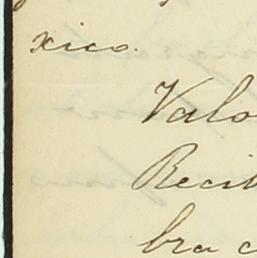 xico.
Valo
Recib
bra c